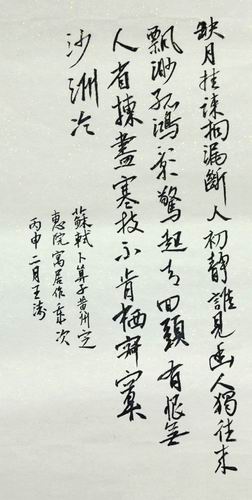 缺月挂疎桐漏断人初静谁见幽人独往来
飘渺孤鸿影惊起却回头有恨无
人省拣尽寒枝不肯栖寂寞
沙洲冷
苏轼卜算子黄州定
惠院寓居作
丙申二月